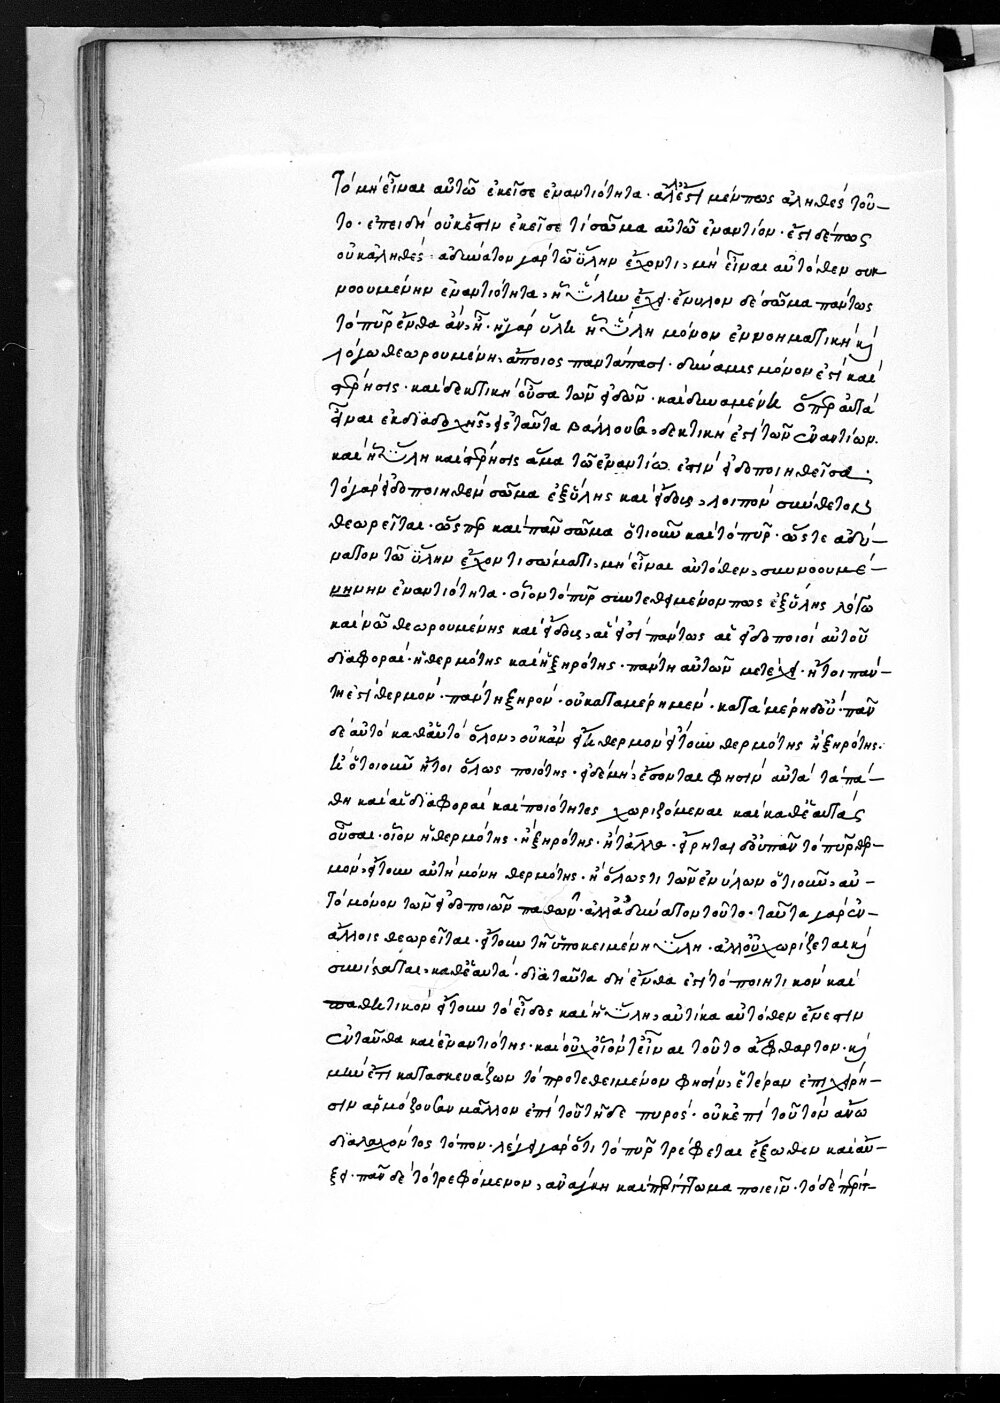 τὸ μὴ εἶναι αὐτῶ ἐκεῖσε ἐναντιότητα· ἀλλ' ἔστι μέν πως ἀληθὲς τοῦ–
το· ἐπειδὴ οὐκ ἔστιν ἐκεῖσε τὶ σῶμα αὐτῶ ἐναντίον· ἔστι δέ πως
οὐκ ἀληθές· ἀδύνατον γὰρ τῶ ὕλην ἔχοντι, μὴ εἶναι αὐτόθεν συν
νοουμένην ἐναντιότητα, ἢ ὕλην ἔχει· ἔνυλον δὲ σῶμα πάντως
τὸ πῦρ ἔνθα ἂν ἦ· ἡ γὰρ ὕλη μόνον ἐννοηματικὴ καὶ
λόγω θεωρουμένη, ἄποιος παντάπασι· δύναμις μόνον ἐστὶ καὶ
στέρησις· καὶ δεκτικὴ οὖσα τῶν εἰδῶν· καὶ δυναμένη ὅπερ αὐτὰ
εἶναι ἐκ διαδοχῆς, εἰς ταῦτα βάλλουσα, δεκτική ἐστι τῶν ἐναντίων·
καὶ ἡ ὕλη καὶ στέρησις ἅμα τῶ ἐναντίω ἐστὶν εἰδοποιηθεῖσα·
τὸ γὰρ εἰδοποιηθὲν σῶμα ἐξ ὕλης καὶ εἴδους, λοιπὸν σύνθετον
θεωρεῖται· ὥσπερ καὶ πᾶν σῶμα ὁτιοῦν καὶ τὸ πῦρ· ὥστε ἀδύ–
νατον τῶ ὕλην ἔχοντι σώματι, μὴ εἶναι αὐτόθεν, συννοουμέ–
νηνην ἐναντιότητα· οἷον τὸ πῦρ συντεθειμένον πως ἐξ ὕλης λόγω
καὶ νῶ θεωρουμένης καὶ εἴδους, αἵ εἰσι πάντως αἱ εἰδοποιοὶ αὐτοῦ
διαφοραί· ἡ θερμότης καὶ ἡ ξηρότης· πάντη αὐτῶν μετέχει· ἤτοι πάν–
τη ἐστὶ θερμόν· πάντη ξηρόν· οὐ κατὰ μέρη μέν· κατὰ μέρη δ' οὔ· πᾶν
δὲ αὐτὸ καθ' αὑτὸ ὅλον, οὐκ ἂν εἴη θερμὸν εἴτουν θερμότης ἢ ξηρότης·
ἢ ὁτιοῦν ἤτοι ὅλως ποιότης· εἰ δὲ μή, ἔσονται φησὶν αὐτὰ τὰ πά–
θη καὶ αἱ διαφοραὶ καὶ ποιότητες χωριζόμεναι καὶ καθ' ἑαυτὰς
οὖσαι· οἷον ἡ θερμότης· ἢ ξηρότης· ἢ τἄλλα· εἴρηται δ' οὖν πᾶν τὸ πῦρ θερ–
μόν, εἴτουν αὐτὴ μόνη θερμότης· ἢ ὅλως τι τῶν ἐνύλων ὁτιοῦν, αὐ–
τὸ μόνον τῶν εἰδοποιῶν παθῶν· ἀλλὰ ἀδύνατον τοῦτο· ταῦτα γὰρ ἐν–
ἄλλοις θεωρεῖται· εἴτουν τῆ ὑποκειμένη ὕλη· ἀλλ' οὐ χωρίζεται καὶ
συνίσταται, καθ' ἑαυτά· διὰ ταῦτα δὴ ἔνθα ἐστὶ τὸ ποιητικὸν καὶ
παθητικὸν εἴτουν τὸ εἶδος καὶ ἡ ὕλη, αὐτίκα αὐτόθεν ἔνεστιν
ἐνταῦθα καὶ ἐναντιότης· καὶ οὐχ οἷόν τ' εἶναι τοῦτο ἄφθαρτον· καὶ
μὴν ἔτι κατασκευάζων τὸ προτεθειμένον φησίν, ἑτέραν ἐπιχείρη–
σιν ἁρμόζουσαν μᾶλλον ἐπὶ τοῦ τῆδε πυρός· οὐκ ἐπὶ τοῦ τὸν ἄνω
διαλαχόντος τόπον· λέγει γὰρ ὅτι τὸ πῦρ τρέφεται ἔξωθεν καὶ αὔ–
ξει· πᾶν δὲ τὸ τρεφόμενον, ἀνάγκη καὶ περίττωμα ποιεῖν· τὸ δὲ περίτ–